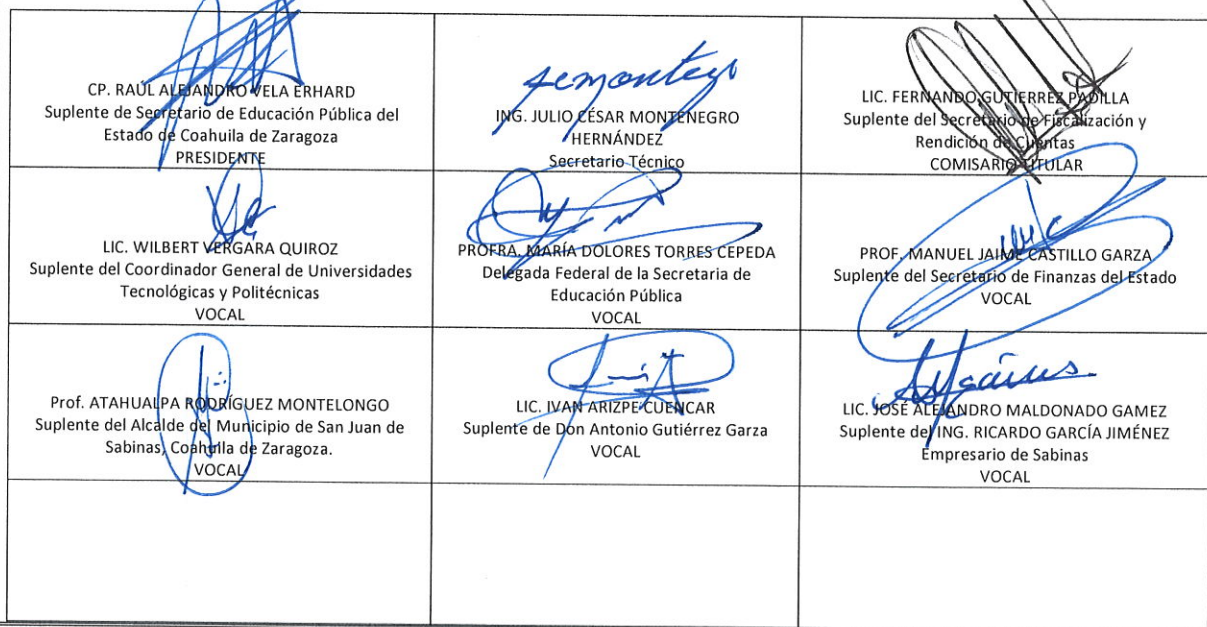 CP. RAÚL ALEJANDRO VELA ERHARD
Suplente de Secretario de Educación Pública del
Estado de Coahuila de Zaragoza
PRESIDENTE
ING. JULIO CÉSAR MONTENEGRO
HERNÁNDEZ
Secretario Técnico
LIC. FERNANDO GUTIERREZ PADILLA
Suplente del Secretario de Fiscalización y
Rendición de Cuentas
COMISARIO TITULAR
LIC. WILBERT VERGARA QUIROZ
Suplente del Coordinador General de Universidades
Tecnológicas y Politécnicas
VOCAL
PROFRA. MARÍA DOLORES TORRES CEPEDA
Delegada Federal de la Secretaria de
Educación Pública
VOCAL
PROF. MANUEL JAIME CASTILLO GARZA
Suplente del Secretario de Finanzas del Estado
VOCAL
Prof. ATAHUALPA RODRÍGUEZ MONTELONGO
Suplente del Alcalde del Municipio de San Juan de
Sabinas, Coahuila de Zaragoza.
VOCAL
LIC. IVAN ARIZPE CUENCAR
Suplente de Don Antonio Gutiérrez Garza
VOCAL
LIC. JOSÉ ALEJANDRO MALDONADO GAMEZ
Suplente del ING. RICARDO GARCÍA JIMÉNEZ
Empresario de Sabinas
VOCAL